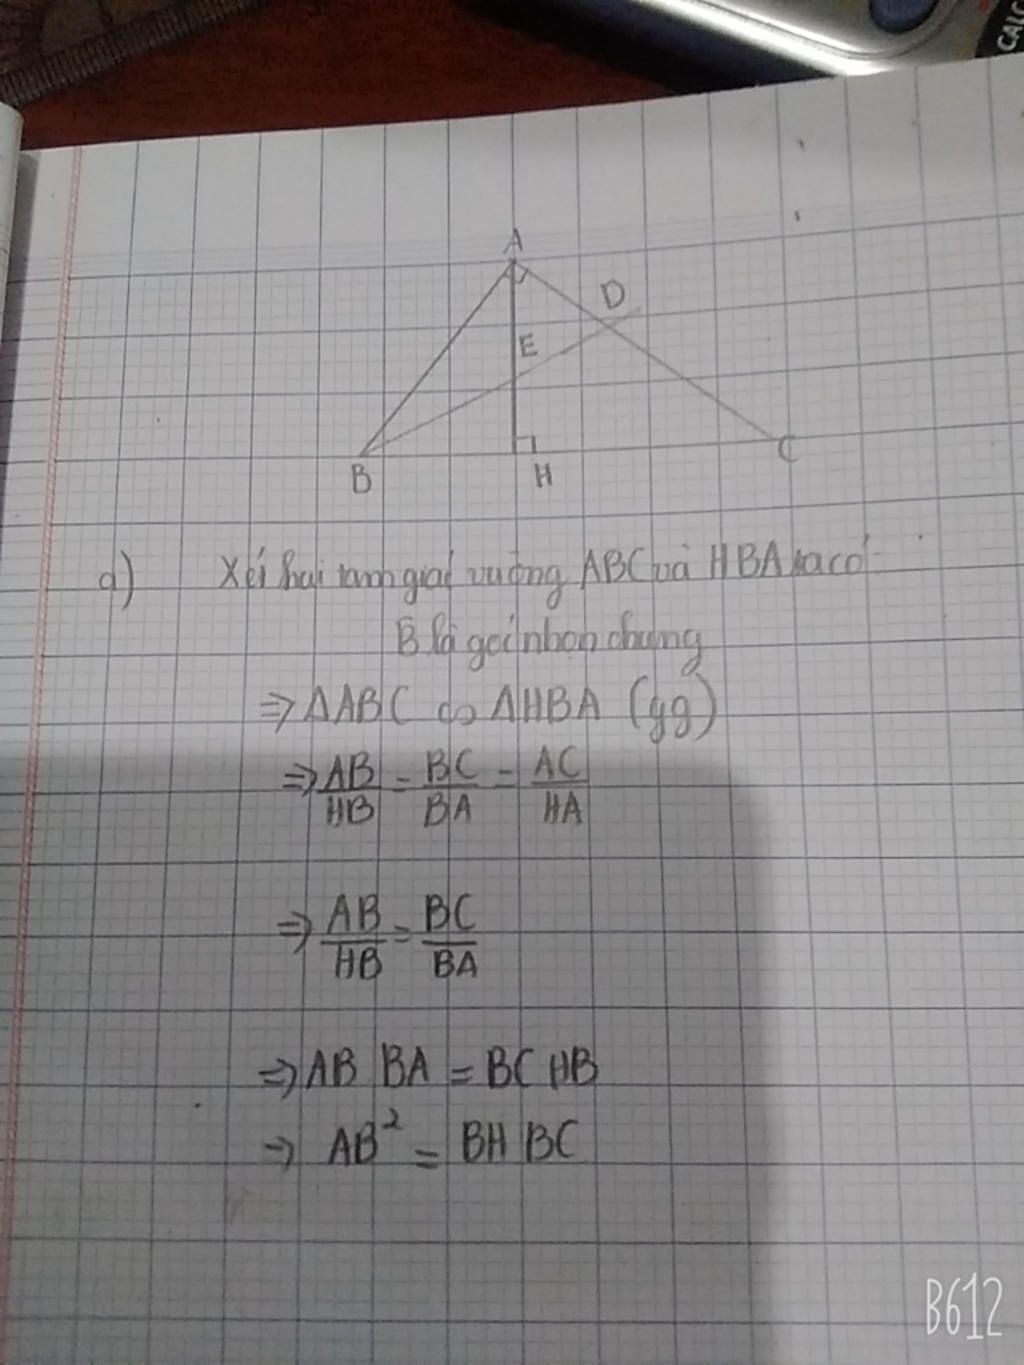 CALC
A
D
E
B
H
C
a) Xét hai tam giác vuông ABC và HBA ta có
B là góc nhọn chung
⇒ ΔABC ∽ ΔHBA (gg)
⇒ AB/HB = BC/BA = AC/HA
⇒ AB/HB = BC/BA
⇒ AB BA = BC HB
⇒ AB² = BH BC
B612